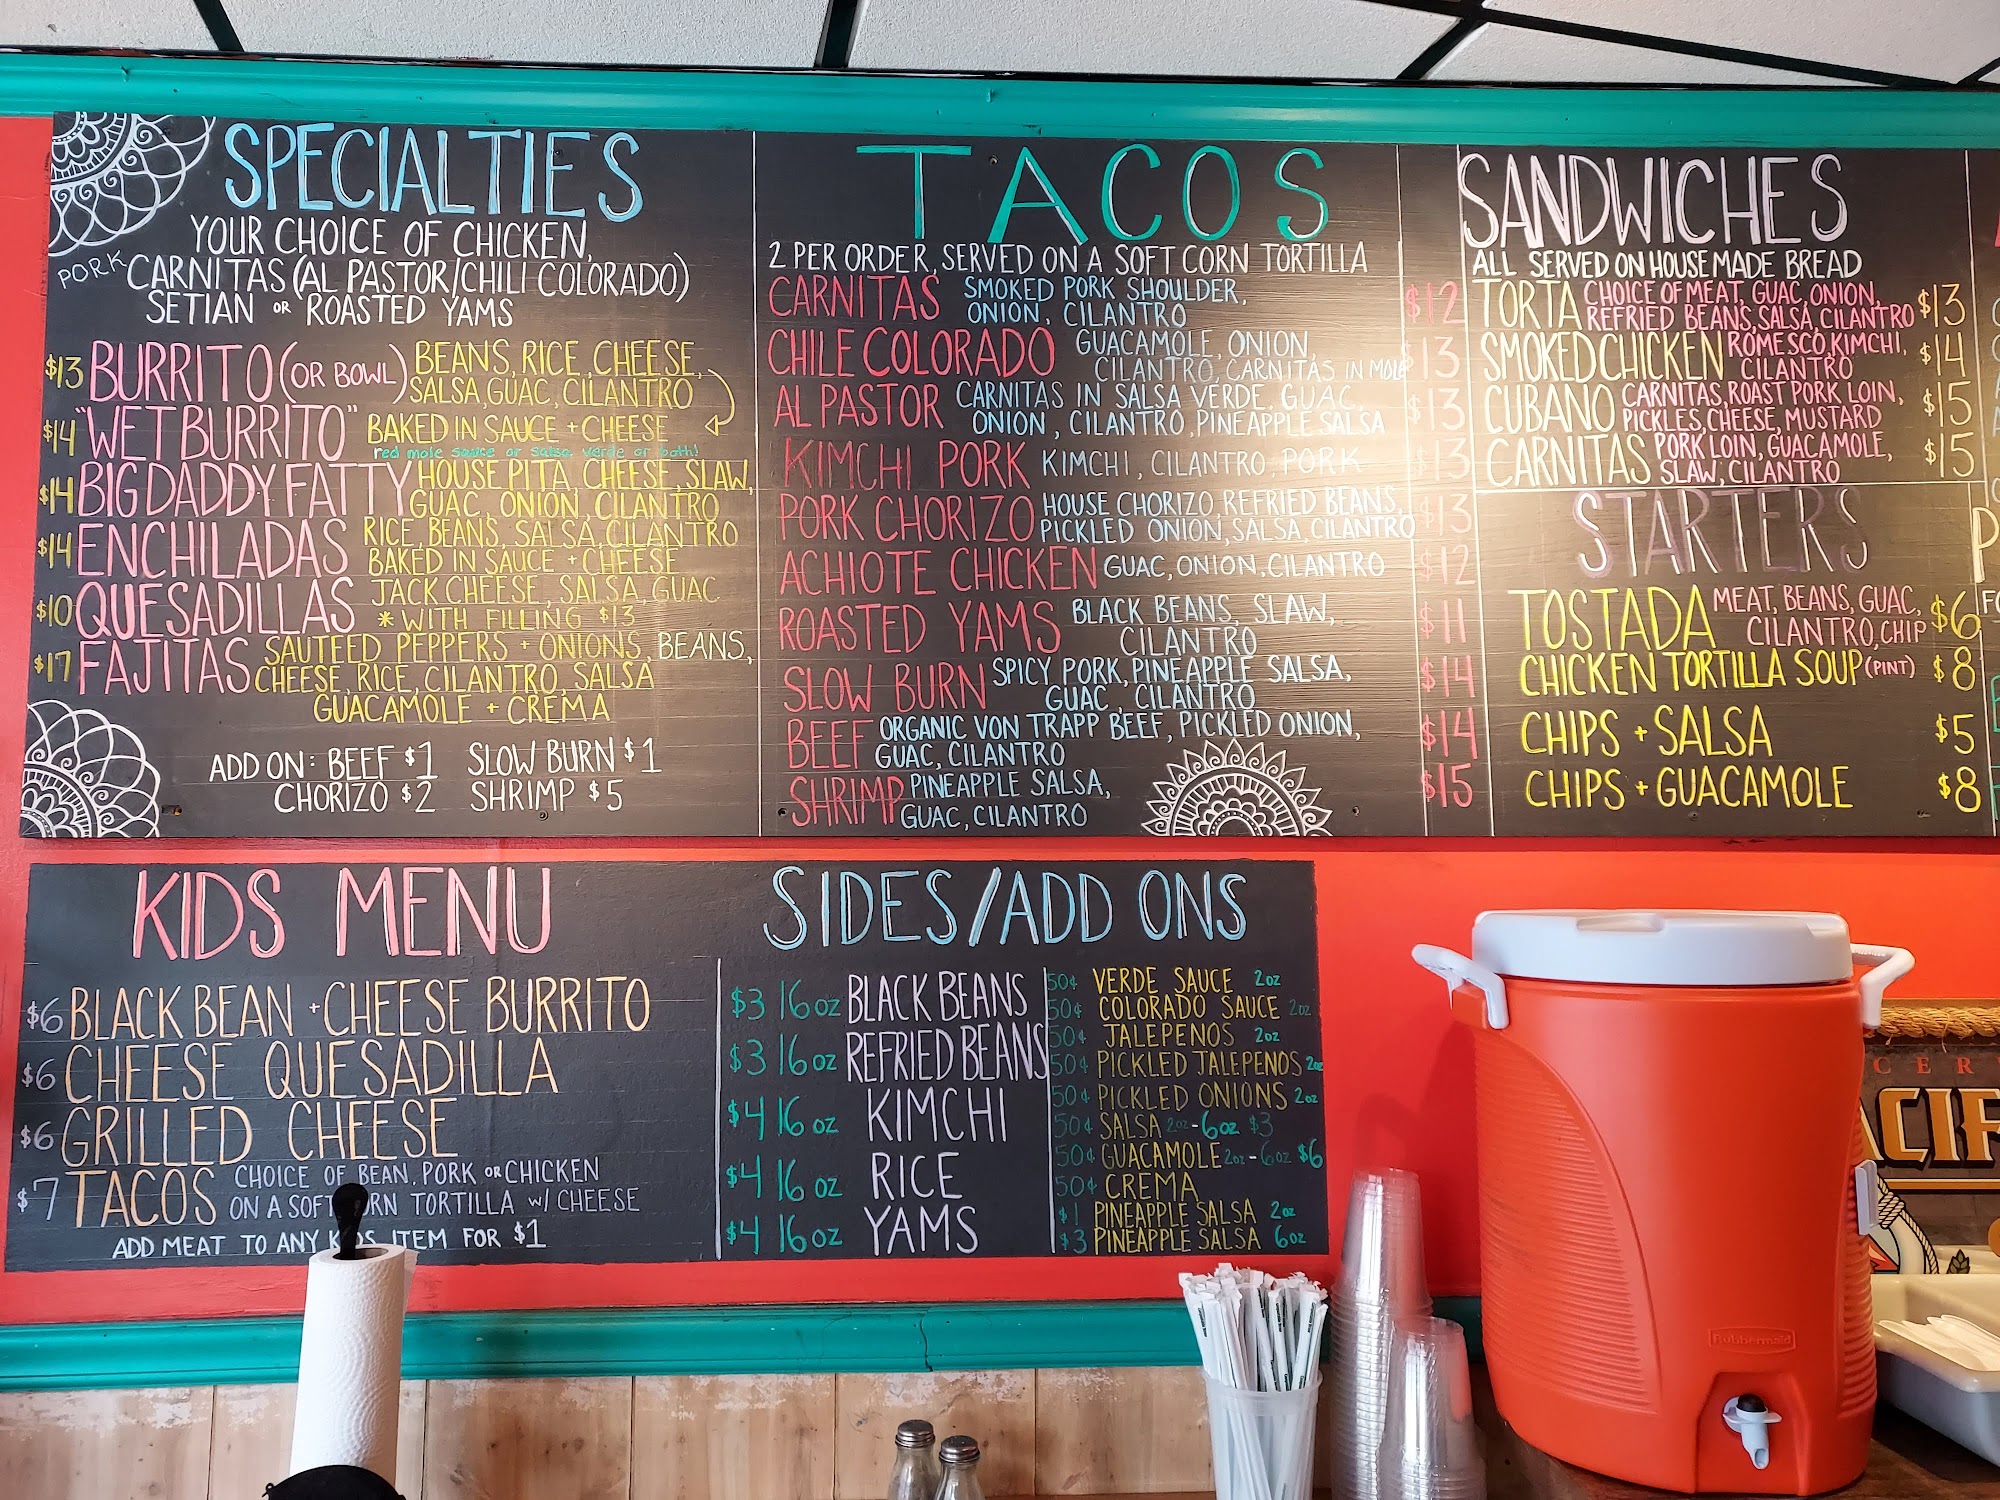 SPECIALTIES
YOUR CHOICE OF CHICKEN,
PORK CARNITAS (AL PASTOR/CHILI COLORADO)
SETIAN OR ROASTED YAMS
$13 BURRITO (OR BOWL) BEANS, RICE, CHEESE,
SALSA, GUAC, CILANTRO
$14 "WET BURRITO" BAKED IN SAUCE + CHEESE
red mole sauce or salsa verde or both!
$14 BIG DADDY FATTY HOUSE PITA, CHEESE, SLAW,
GUAC, ONION, CILANTRO
$14 ENCHILADAS RICE, BEANS, SALSA, CILANTRO
BAKED IN SAUCE + CHEESE
$10 QUESADILLAS JACK CHEESE, SALSA, GUAC
* WITH FILLING $13
$17 FAJITAS SAUTEED PEPPERS + ONIONS, BEANS,
CHEESE, RICE, CILANTRO, SALSA
GUACAMOLE + CREMA
ADD ON: BEEF $1 SLOW BURN $1
CHORIZO $2 SHRIMP $5
TACOS
2 PER ORDER, SERVED ON A SOFT CORN TORTILLA
CARNITAS SMOKED PORK SHOULDER, $12
ONION, CILANTRO
CHILE COLORADO GUACAMOLE, ONION, $13
CILANTRO, CARNITAS IN MOLE
AL PASTOR CARNITAS IN SALSA VERDE, GUAC, $13
ONION, CILANTRO, PINEAPPLE SALSA
KIMCHI PORK KIMCHI, CILANTRO, PORK $13
PORK CHORIZO HOUSE CHORIZO, REFRIED BEANS, $13
PICKLED ONION, SALSA, CILANTRO
ACHIOTE CHICKEN GUAC, ONION, CILANTRO $12
ROASTED YAMS BLACK BEANS, SLAW, $11
CILANTRO
SLOW BURN SPICY PORK, PINEAPPLE SALSA, $14
GUAC, CILANTRO
BEEF ORGANIC VON TRAPP BEEF, PICKLED ONION, $14
GUAC, CILANTRO
SHRIMP PINEAPPLE SALSA, $15
GUAC, CILANTRO
SANDWICHES
ALL SERVED ON HOUSEMADE BREAD
TORTA CHOICE OF MEAT, GUAC, ONION, $13
REFRIED BEANS, SALSA, CILANTRO
SMOKED CHICKEN ROMESCO, KIMCHI, $14
CILANTRO
CUBANO CARNITAS, ROAST PORK LOIN, $15
PICKLES, CHEESE, MUSTARD
CARNITAS PORK LOIN, GUACAMOLE, $15
SLAW, CILANTRO
STARTERS
TOSTADA MEAT, BEANS, GUAC, $6
CILANTRO, CHIP
CHICKEN TORTILLA SOUP (PINT) $8
CHIPS + SALSA $5
CHIPS + GUACAMOLE $8
KIDS MENU
$6 BLACK BEAN + CHEESE BURRITO
$6 CHEESE QUESADILLA
$6 GRILLED CHEESE
$7 TACOS CHOICE OF BEAN, PORK OR CHICKEN
ON A SOFT CORN TORTILLA W/ CHEESE
ADD MEAT TO ANY KIDS ITEM FOR $1
SIDES/ADD ONS
$3 16oz BLACK BEANS
$3 16oz REFRIED BEANS
$4 16oz KIMCHI
$4 16oz RICE
$4 16oz YAMS
50¢ VERDE SAUCE 2oz
50¢ COLORADO SAUCE 2oz
50¢ JALEPENOS 2oz
50¢ PICKLED JALEPENOS 2oz
50¢ PICKLED ONIONS 2oz
50¢ SALSA 2oz - 6oz $3
50¢ GUACAMOLE 2oz - 6oz $6
50¢ CREMA
$1 PINEAPPLE SALSA 2oz
$3 PINEAPPLE SALSA 6oz
Rubbermaid
CER
ACIF